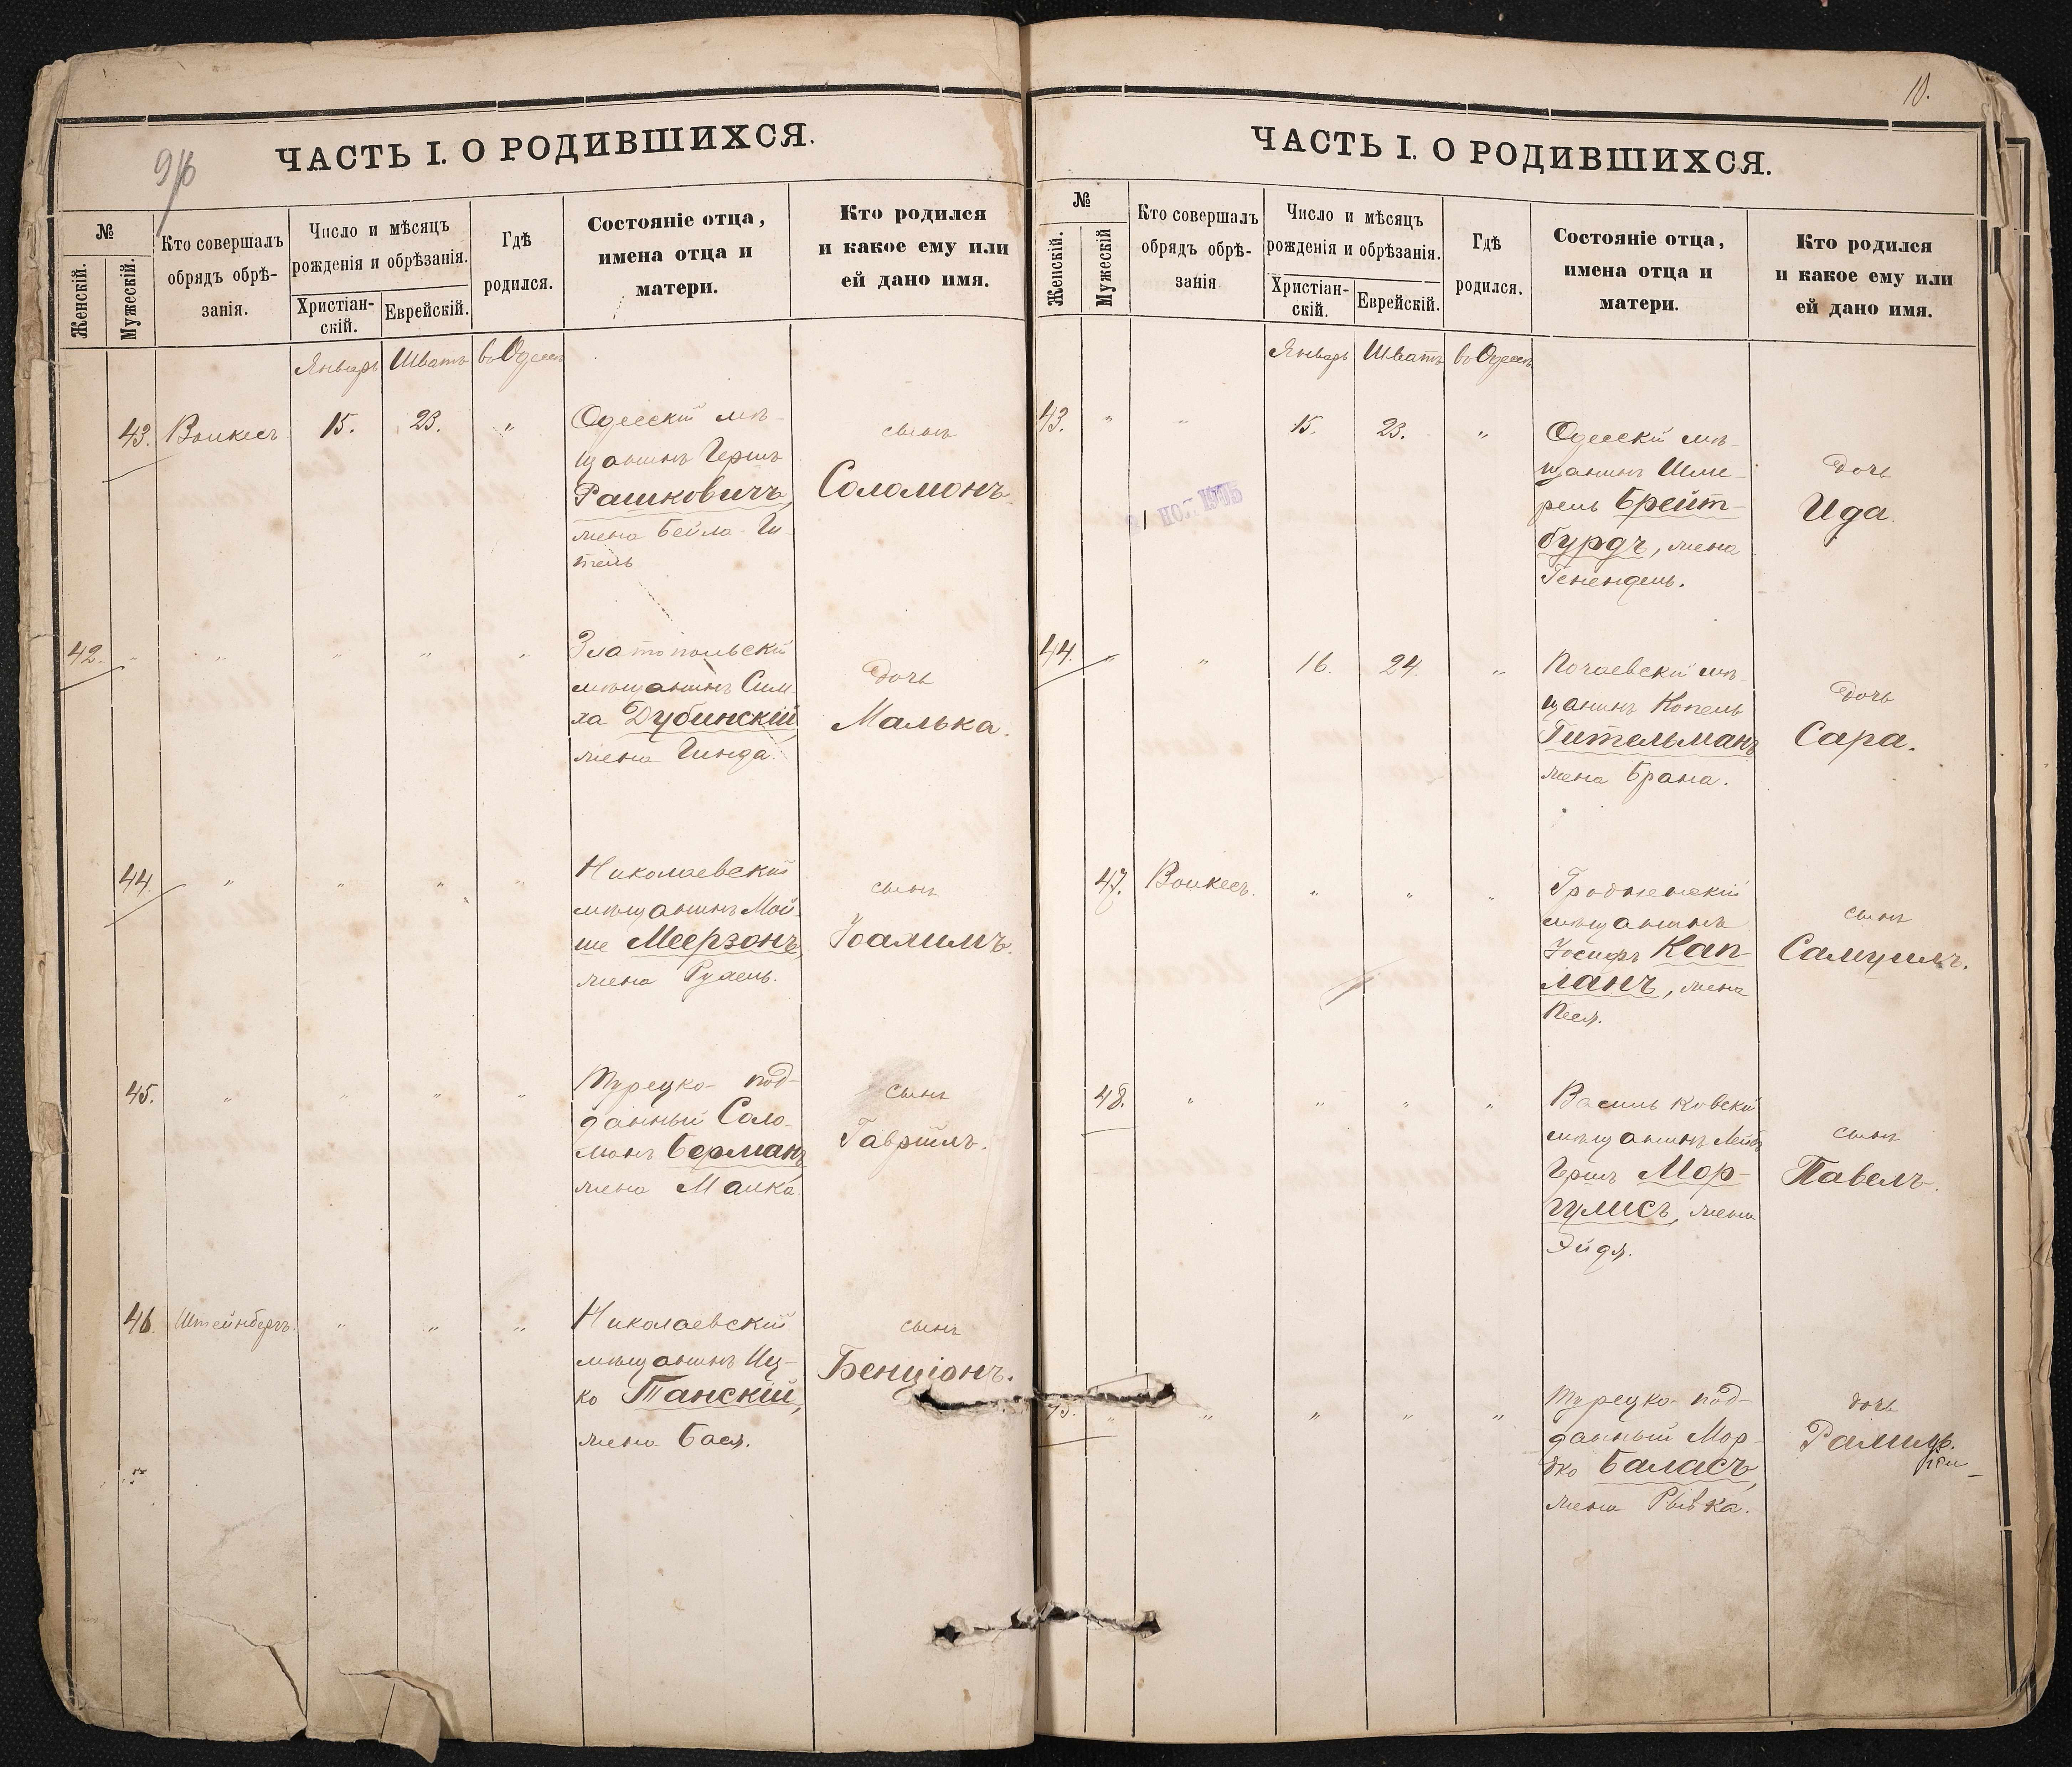 ЧАСТЬ I. О РОДИВШИХСЯ.
№
Женскій.
Мужескій.
Кто совершалъ
обрядъ обрѣ-
занія.
Число и мѣсяцъ
рожденія и обрѣзанія.
Христіан-
скій.
Еврейскій.
Гдѣ
родился.
Состояніе отца,
имена отца и
матери.
Кто родился
и какое ему или
ей дано имя.
Январь Шватъ въ Одессѣ
43. 15. 23. "
Одесскій мѣ-
щанинъ Гершъ
Рашковичъ,
жена Бейла-Ги-
тель
сынъ
Соломонъ
42. " " " " "
Златопольскій
мѣщанинъ Сим
ха Дубинскій,
жена Гинда.
дочь
Малька.
44. " " " "
Николаевскій
мѣщанинъ Мой-
ше Меерзонъ,
жена Рухель.
сынъ
45. " " " "
Турецко-под-
данный Соло-
монъ Берманъ
жена Малка
сынъ
Гавріилъ.
46. Штейнбергъ. " " "
Николаевскій
мѣщанинъ Иц-
ко Панскій,
жена Бася.
сынъ
Бенціонъ.
10.
ЧАСТЬ I. О РОДИВШИХСЯ.
№
Женскій.
Мужескій
Кто совершалъ
обрядъ обрѣ-
занія.
Число и мѣсяцъ
рожденія и обрѣзанія.
Христіан-
скій.
Еврейскій.
Гдѣ
родился.
Состояніе отца,
имена отца и
матери.
Кто родился
и какое ему или
ей дано имя.
Январь Шватъ въ Одессѣ
43. " " 15. 23. "
Одесскій мѣ-
щанинъ Шме-
рель Брейт-
бурдъ, жена
Генендель.
дочь
Ида.
44. " " 16. 24. "
Почаевскій мѣ-
щанинъ Копель
Гительманъ
жена Брана.
дочь
Сара.
47. " " "
Гродненскій
мѣщанинъ
Іосифъ Кап-
ланъ, жена
Песя.
сынъ
Самуилъ.
48. " " " "
Васильковскій
мѣщанинъ Лейбъ
Гершъ Мор-
гулисъ, жена
Эйдя.
сынъ
Павелъ.
" " " " "
Турецко-под-
данный Мор-
дко Баласъ,
жена Рывка.
дочь